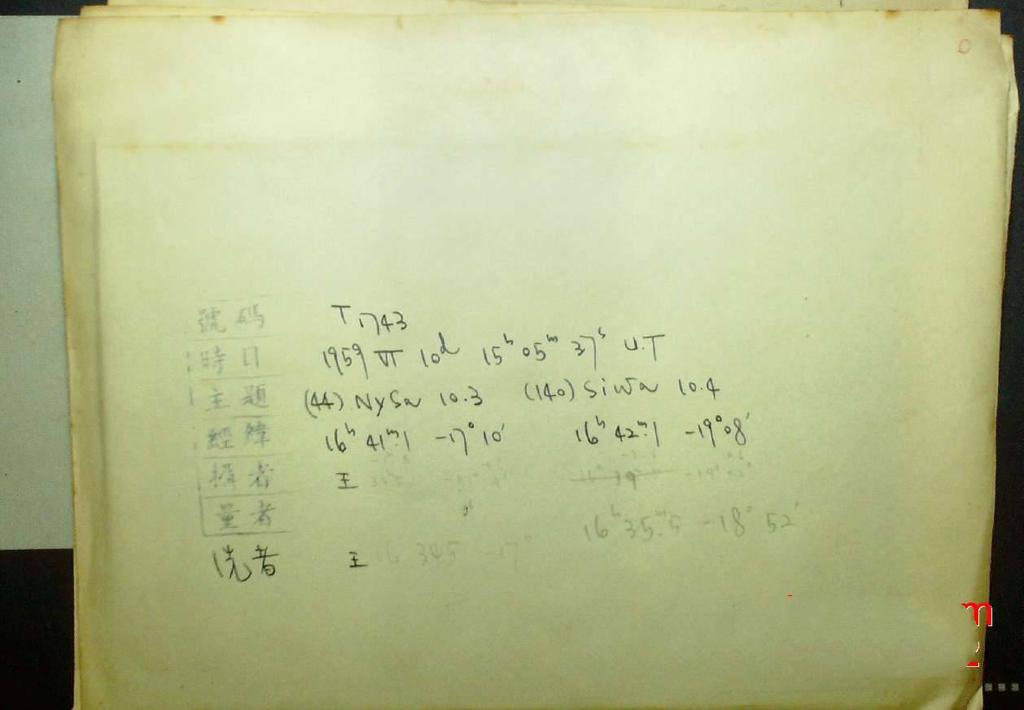 0
號碼 T 1743
時日 1959 VI 10d 15h 05m 37s U.T
主題 (44) Nysa 10.3 (140) Siwa 10.4
經緯 16h 41m.1 -17°10′ 16h 42m.1 -19°08′
攝者 王
量者
16h 35m.5 -18°52′
洗者 王 16 345 -17°
m